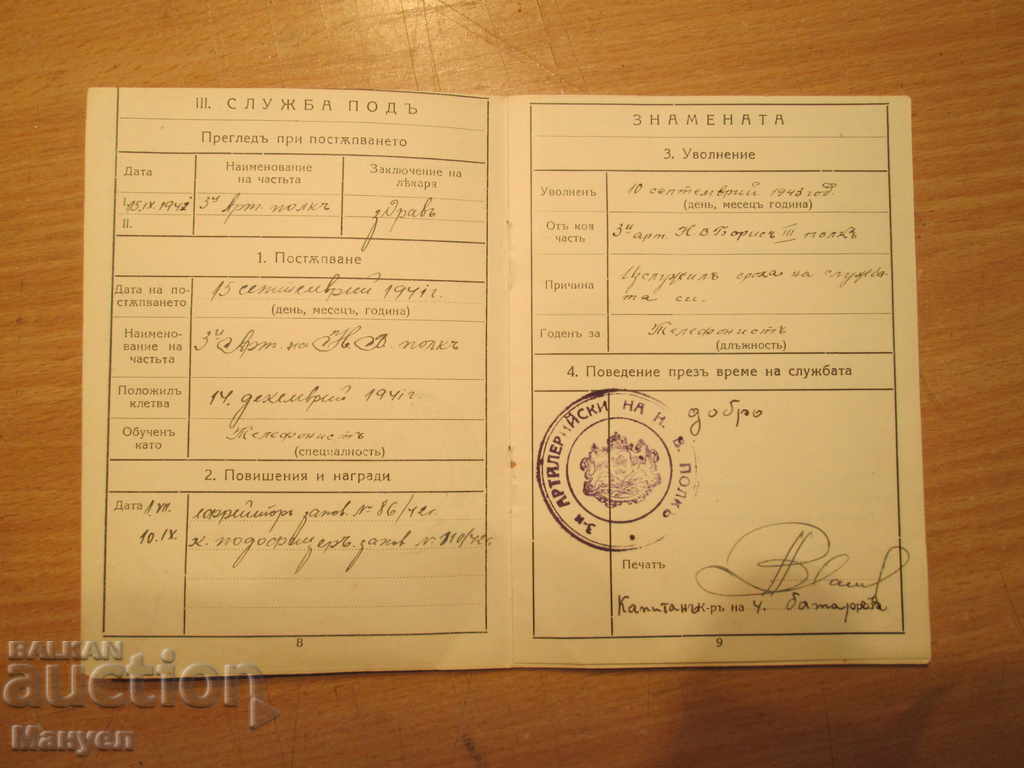 III. СЛУЖБА ПОДЪ
Прегледъ при постѫпването
Дата
Наименование на частьта
Заключение на лѣкаря
I. 15.IX.1941 3й Арт. полкъ здравъ
II.
1. Постѫпване
Дата на постѫпването
15 септемврий 1941 г.
(день, месецъ, година)
Наименование на частьта
3й Арт. на Н В. полкъ
Положилъ клетва
14 декемврий 1941 г.
Обученъ като
Телефонистъ
(специалность)
2. Повишения и награди
Дата 1.VII. ефрейторъ запов. № 86/42 г.
10.IX. к. подофицеръ. запов № 110/42 г.
8
ЗНАМЕНАТА
3. Уволнение
Уволненъ
10 септемврий 1943 год.
(день, месецъ година)
Отъ коя часть
3й арт. Н В Борисъ III полкъ
Причина
Изслужилъ срока на службата си.
Годенъ за
Телефонистъ
(длъжность)
4. Поведение презъ време на службата
добро
3-и АРТИЛЕРИЙСКИ НА Н. В. ПОЛКЪ
Печатъ
Капитанъ к-ръ на 4. батарея
9
BALKAN
auction
Makyen